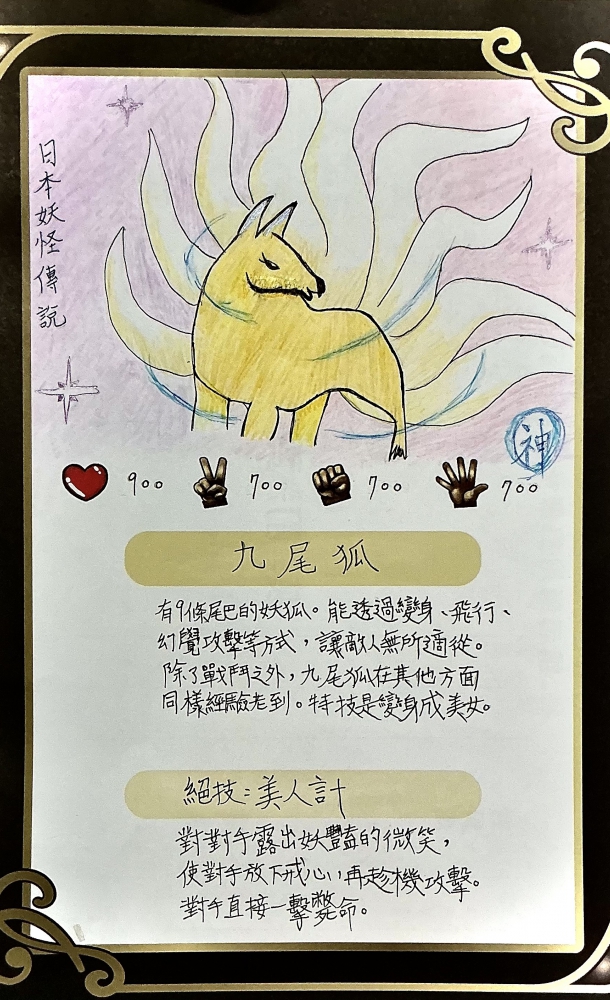 日本妖怪傳說
神
900 700 700 700
九尾狐
有9條尾巴的妖狐。能透過變身、飛行、
幻覺攻擊等方式，讓敵人無所適從。
除了戰鬥之外，九尾狐在其他方面
同樣經驗老到。特技是變身成美女。
絕技：美人計
對對手露出妖豔的微笑，
使對手放下戒心，再趁機攻擊。
對手直接一擊斃命。